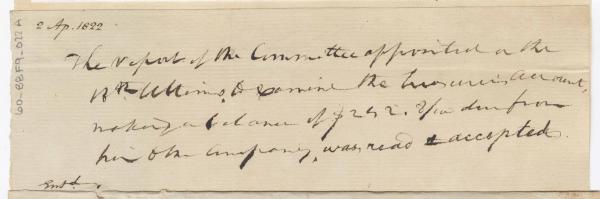 2 Ap. 1822
The report of the Committee appointed on the
18th Ultimo, to examine the Treasurer's Account,
making a balance of $242. due from
him to the Company, was read & accepted.
60-88F9-022A